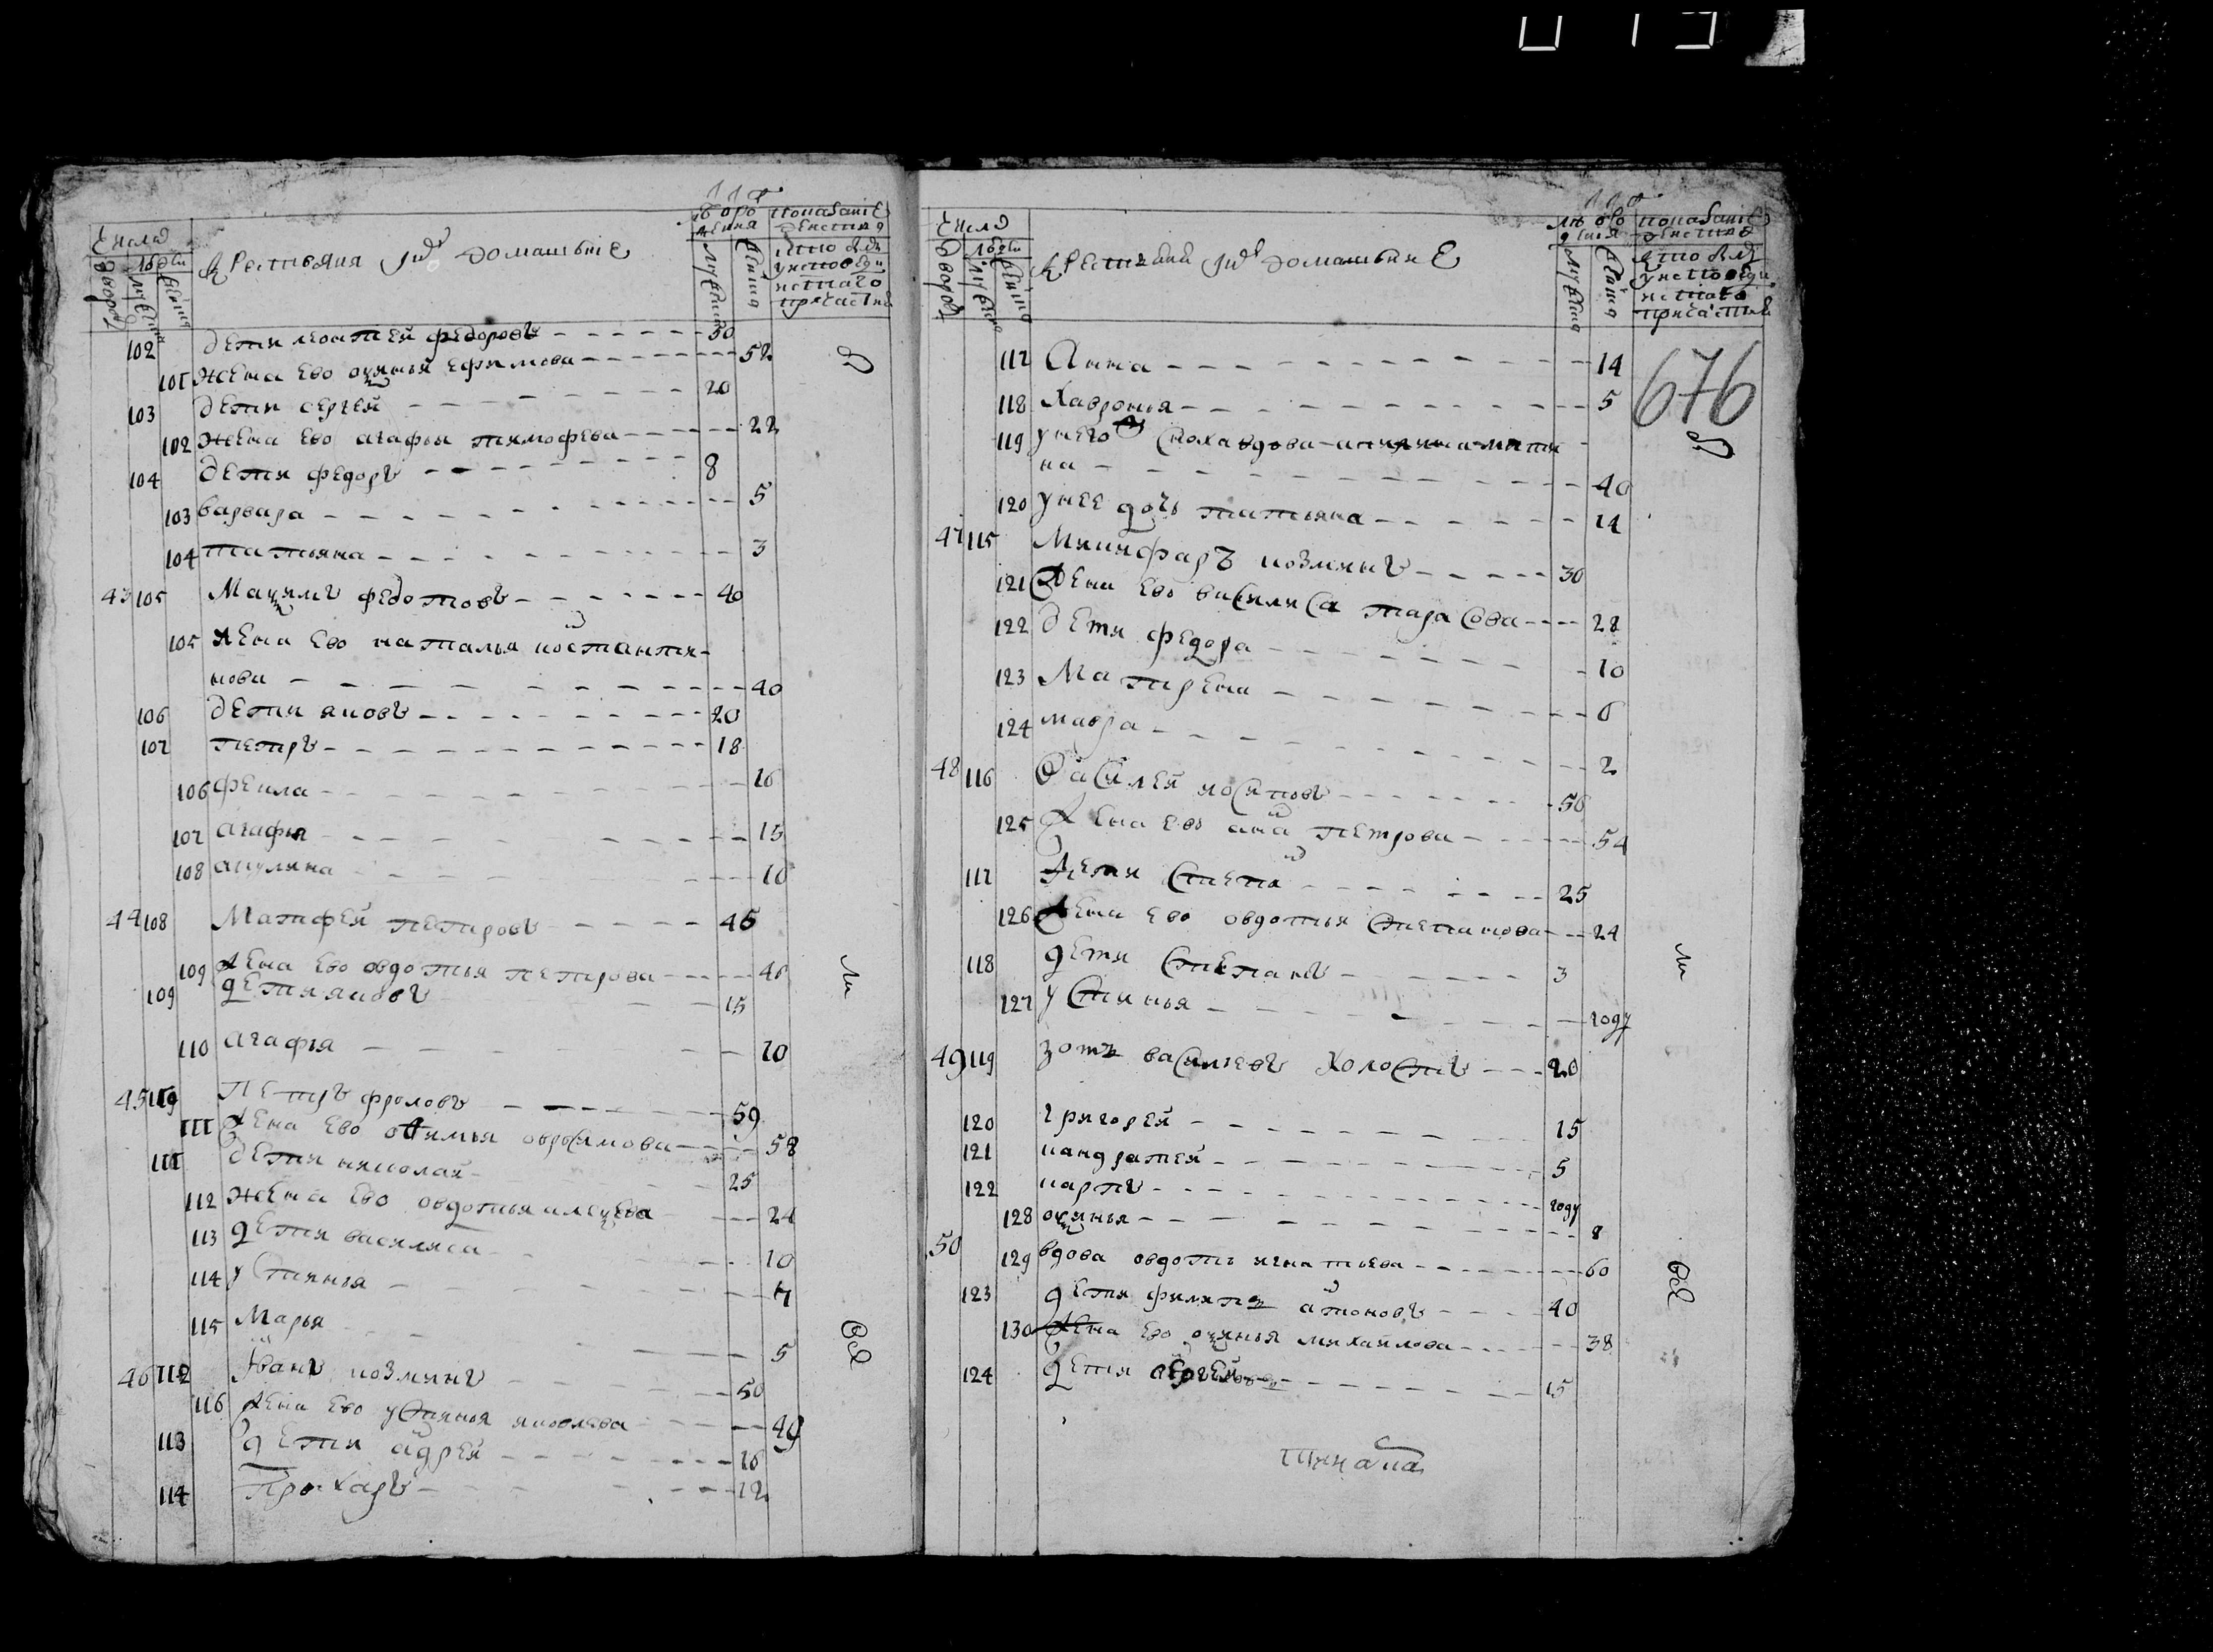 Число
Крестьяня и их домашьние
Двороѵъ
Людеи
102 дети леонтей федоровъ 50
101 жена ево оксинья ефимова 52
103 дети сергей 20
102 жена ево агафья тимофева 22
104 дети федоръ 8
103 варвара 5
104 татьяна 3
43 105 Максимъ федотовъ 40
105 жена ево наталья костантя-
нова 40
106 дети яковъ 20
107 петръ 18
106 фекла 16
107 агафья 15
108 акулина 10
44 108 Матфей петровъ 45
109 жена ево овдотья петрова 46
109 дети яковъ 15
110 агафья 10
45 Петръ фроловъ 59
111 жена ево офимья 58
111 дети николай 25
112 жена ево овдотья алексева 24
113 дети василиса 10
114 устинья 7
115 Марья 5
46 112 Иванъ козминъ 50
116 жена ево устинья яковлева 49
113 дети андрей 16
114 Прохаръ 12
Число
Крестьяня и их домашьние
676
117 Анна 14
118 Хавронья 5
119 у него сноха вдова
на 40
120 у нее дочь татьяна 14
47 115 Никифаръ козминъ 30
121 жена ево василиса тарасова 28
122 дети федора 10
123 Матрена 6
124 мавра 2
48 116 Василей иосиповъ 56
125 жена ево анна петрова 54
117 дети 25
126 жена ево овдотья степанова 24
118 дети степанъ 3
127 устинья году
49 119 зотъ васильевъ холостъ 20
120 григорей 15
121 кандратей 5
122 карпъ году
128 оксинья 8
50 129 вдова овдотья игнатьева 60
123 дети филипъ антоновъ 40
130 жена ево оксинья михайлова 38
124 дети сергей 15